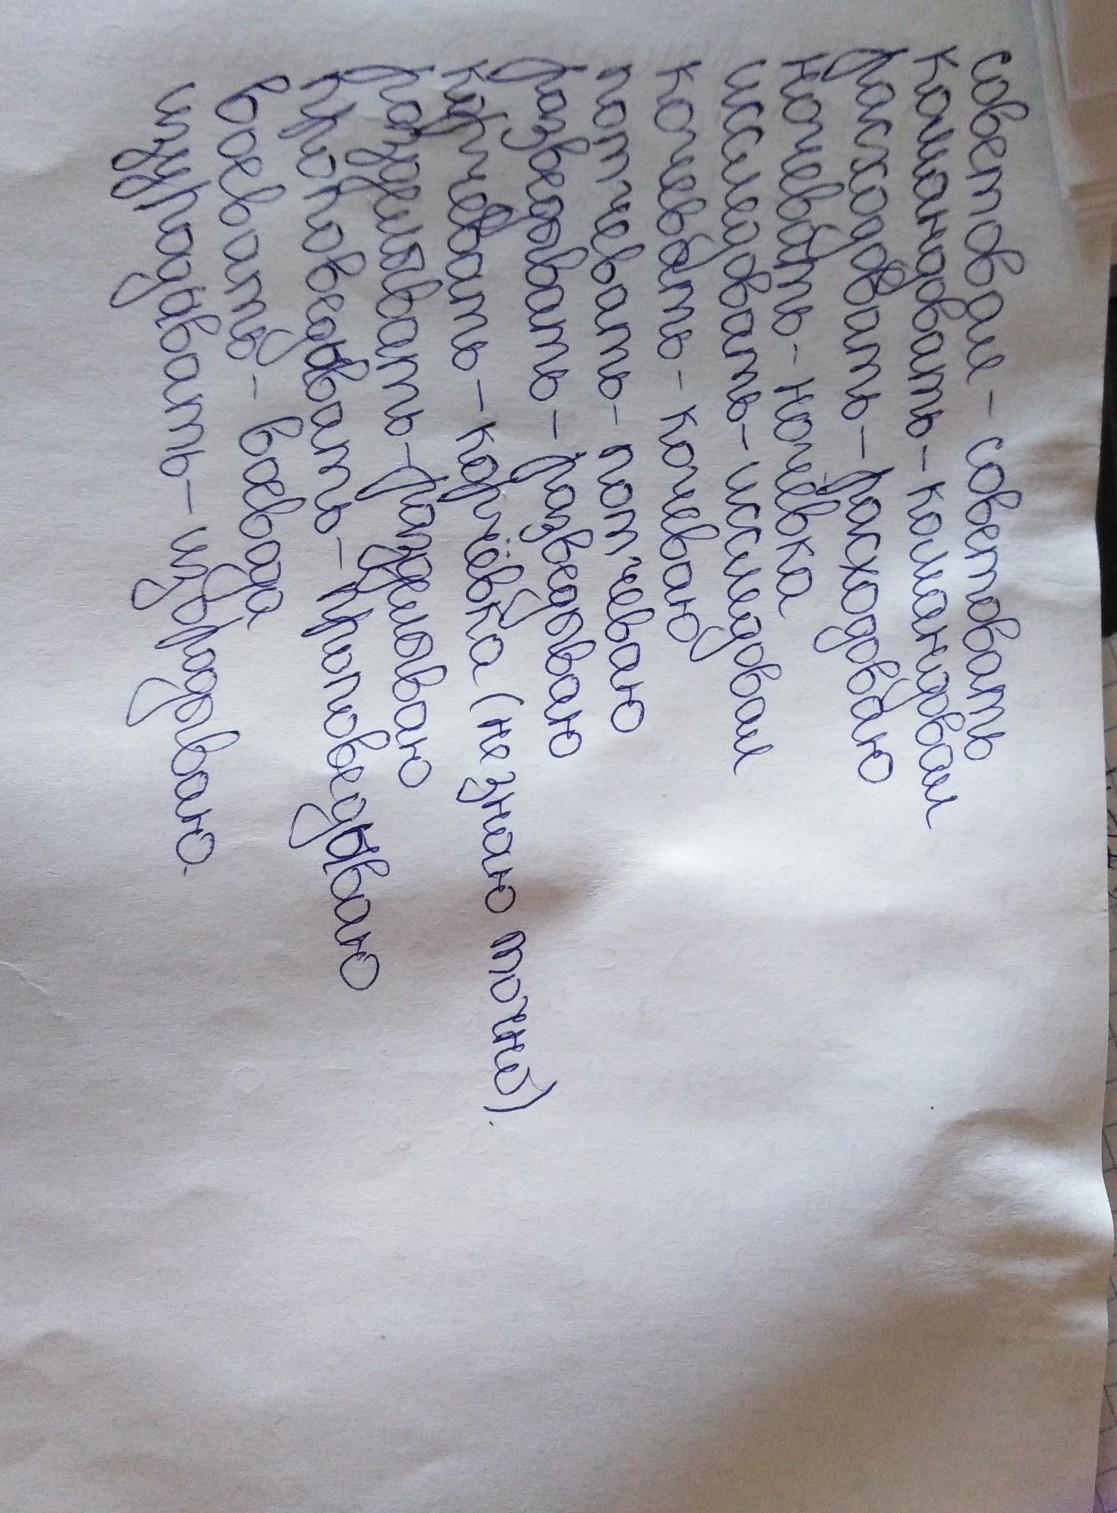 советовал - советовать
командовать - командовал
расходовать - расходоваю
ночевать - ночёвка
исследовать - исследовал
кочевать - кочеваю
потчевать - потчеваю
разведывать - разведоваю
корчевать - корчёвка (не знаю точно)
разделывать - разделоваю
проповедовать - проповедываю
воевать - воевода
изуродовать - изуродоваю.